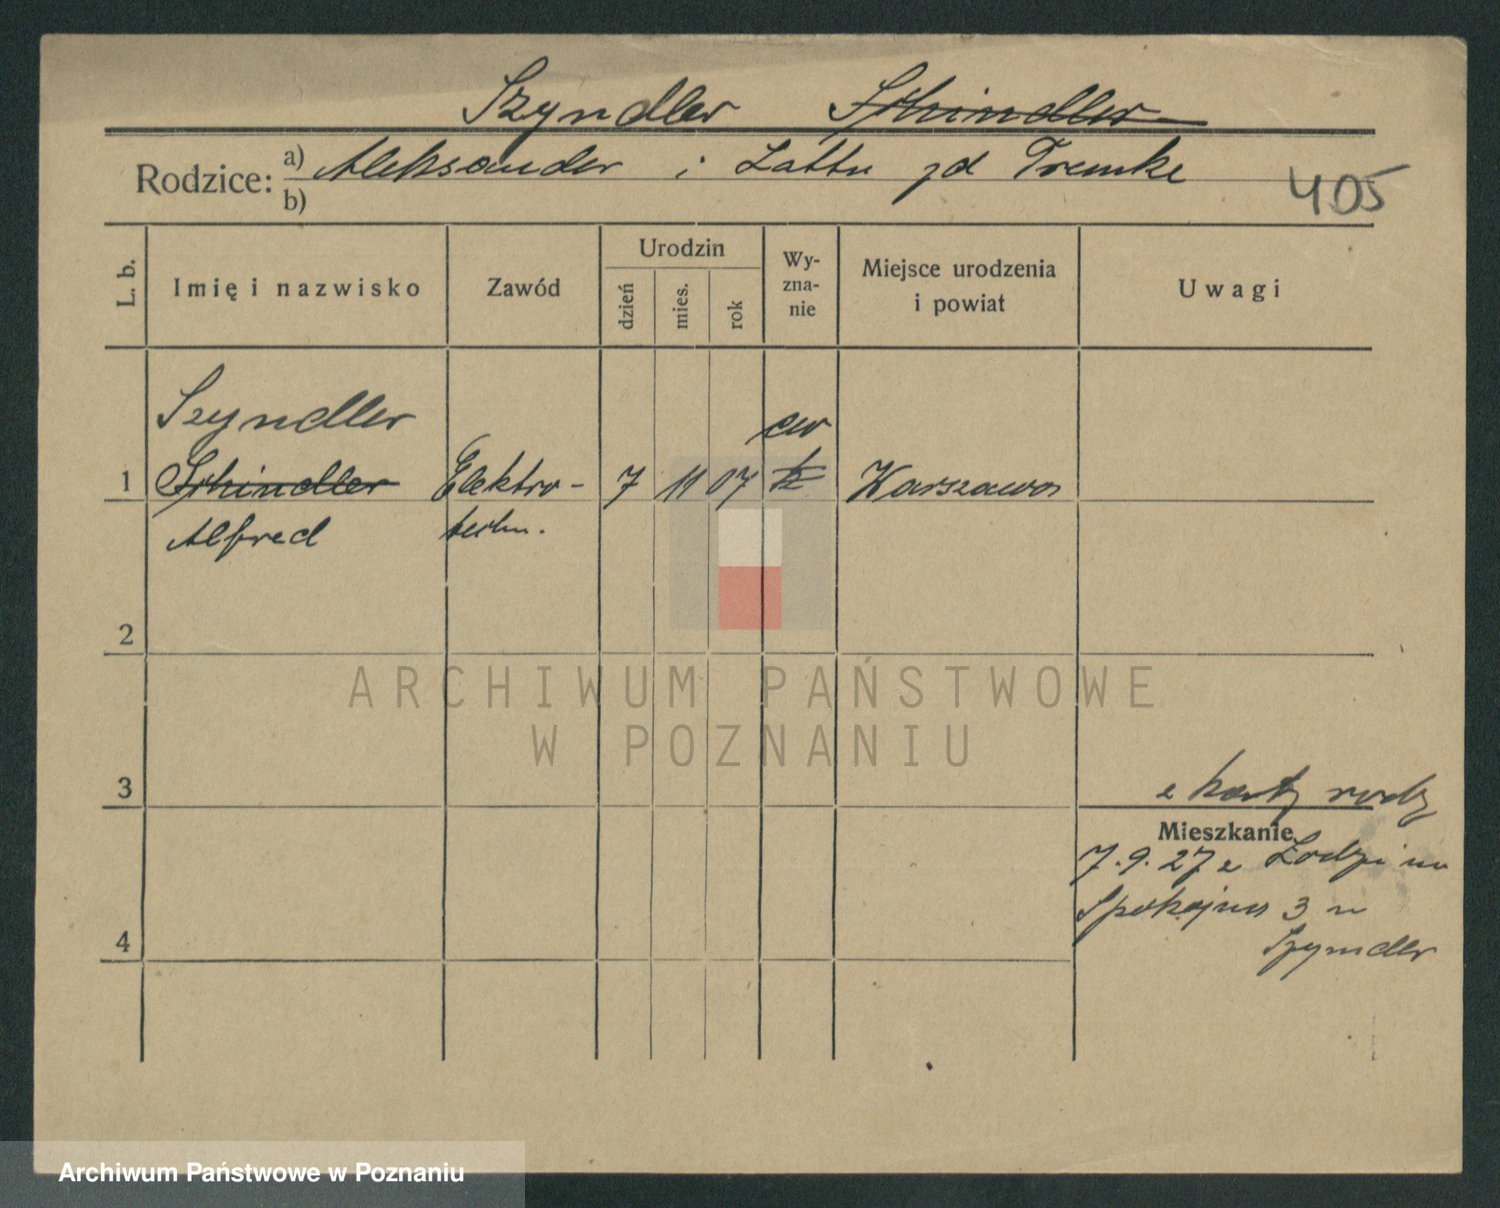 Szyndler Schindler
Rodzice: a) Aleksander i Lattu zd Tremke
b)
405
L. b. Imię i nazwisko Zawód Urodzin dzień mies. rok Wy-zna-nie Miejsce urodzenia i powiat Uwagi
Szyndler ew
1 Schindler Elektro- 7 11 07 Warszawa
Alfred techn.
2
ARCHIWUM PAŃSTWOWE
W POZNANIU
3
z karty rodz
Mieszkanie
7.9.27 z Łodzi
Spokojna 3
4
Szyndler
Archiwum Państwowe w Poznaniu